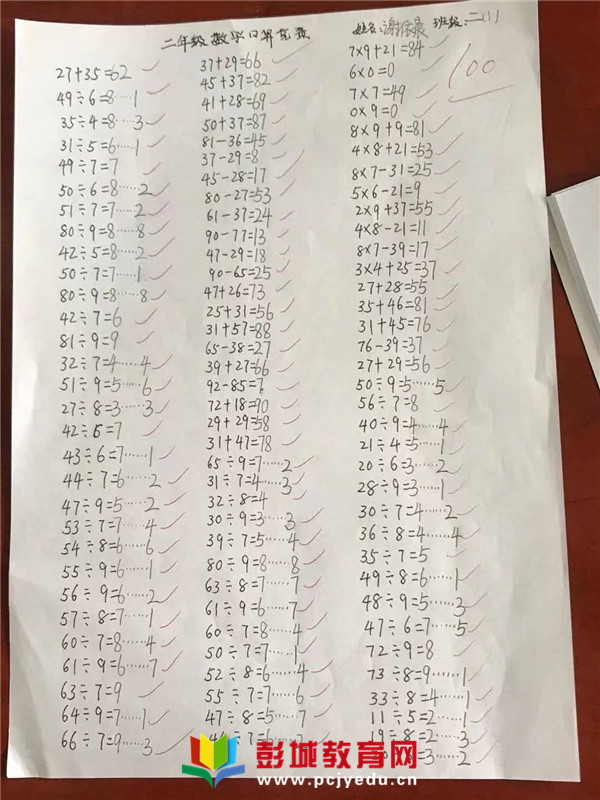 二年级数学口算竞赛
姓名:谢依晨 班级:二(1)
100
27+35=62
49÷6=8……1
35÷4=8……3
31÷5=6……1
49÷7=7
50÷6=8……2
51÷7=7……2
80÷9=8……8
42÷5=8……2
50÷7=7……1
80÷9=8……8
42÷7=6
81÷9=9
32÷7=4……4
51÷9=5……6
27÷8=3……3
42÷6=7
43÷6=7……1
44÷7=6……2
47÷9=5……2
53÷7=7……4
54÷8=6……6
55÷9=6……1
56÷9=6……2
57÷8=7……1
60÷7=8……4
61÷9=6……7
63÷7=9
64÷9=7……1
66÷7=9……3
37+29=66
45+37=82
41+28=69
50+37=87
81-36=45
37-29=8
45-28=17
80-27=53
61-37=24
90-77=13
47-29=18
90-65=25
47+26=73
25+31=56
31+57=88
65-38=27
39+27=66
92-85=7
72+18=90
29+29=58
31+47=78
65÷9=7……2
31÷7=4……3
32÷8=4
30÷9=3……3
39÷7=5……4
80÷9=8……8
63÷8=7……7
61÷9=6……7
60÷7=8……4
50÷7=7……1
52÷8=6……4
55÷7=7……6
47÷8=5……7
7×9+21=84
6×0=0
7×7=49
0×9=0
8×9+9=81
4×8+21=53
8×7-31=25
5×6-21=9
2×9+37=55
4×8-21=11
8×7-39=17
3×4+25=37
27+28=55
35+46=81
31+45=76
76-39=37
27+29=56
50÷9=5……5
56÷7=8
40÷9=4……4
21÷4=5……1
20÷6=3……2
28÷9=3……1
30÷7=4……2
36÷8=4……4
35÷7=5
49÷8=6……1
48÷9=5……3
47÷6=7……5
72÷9=8
73÷8=9……1
33÷8=4……1
11÷5=2……1
19÷8=2……3
=3……2
彭城教育网
www.pcjyedu.cn